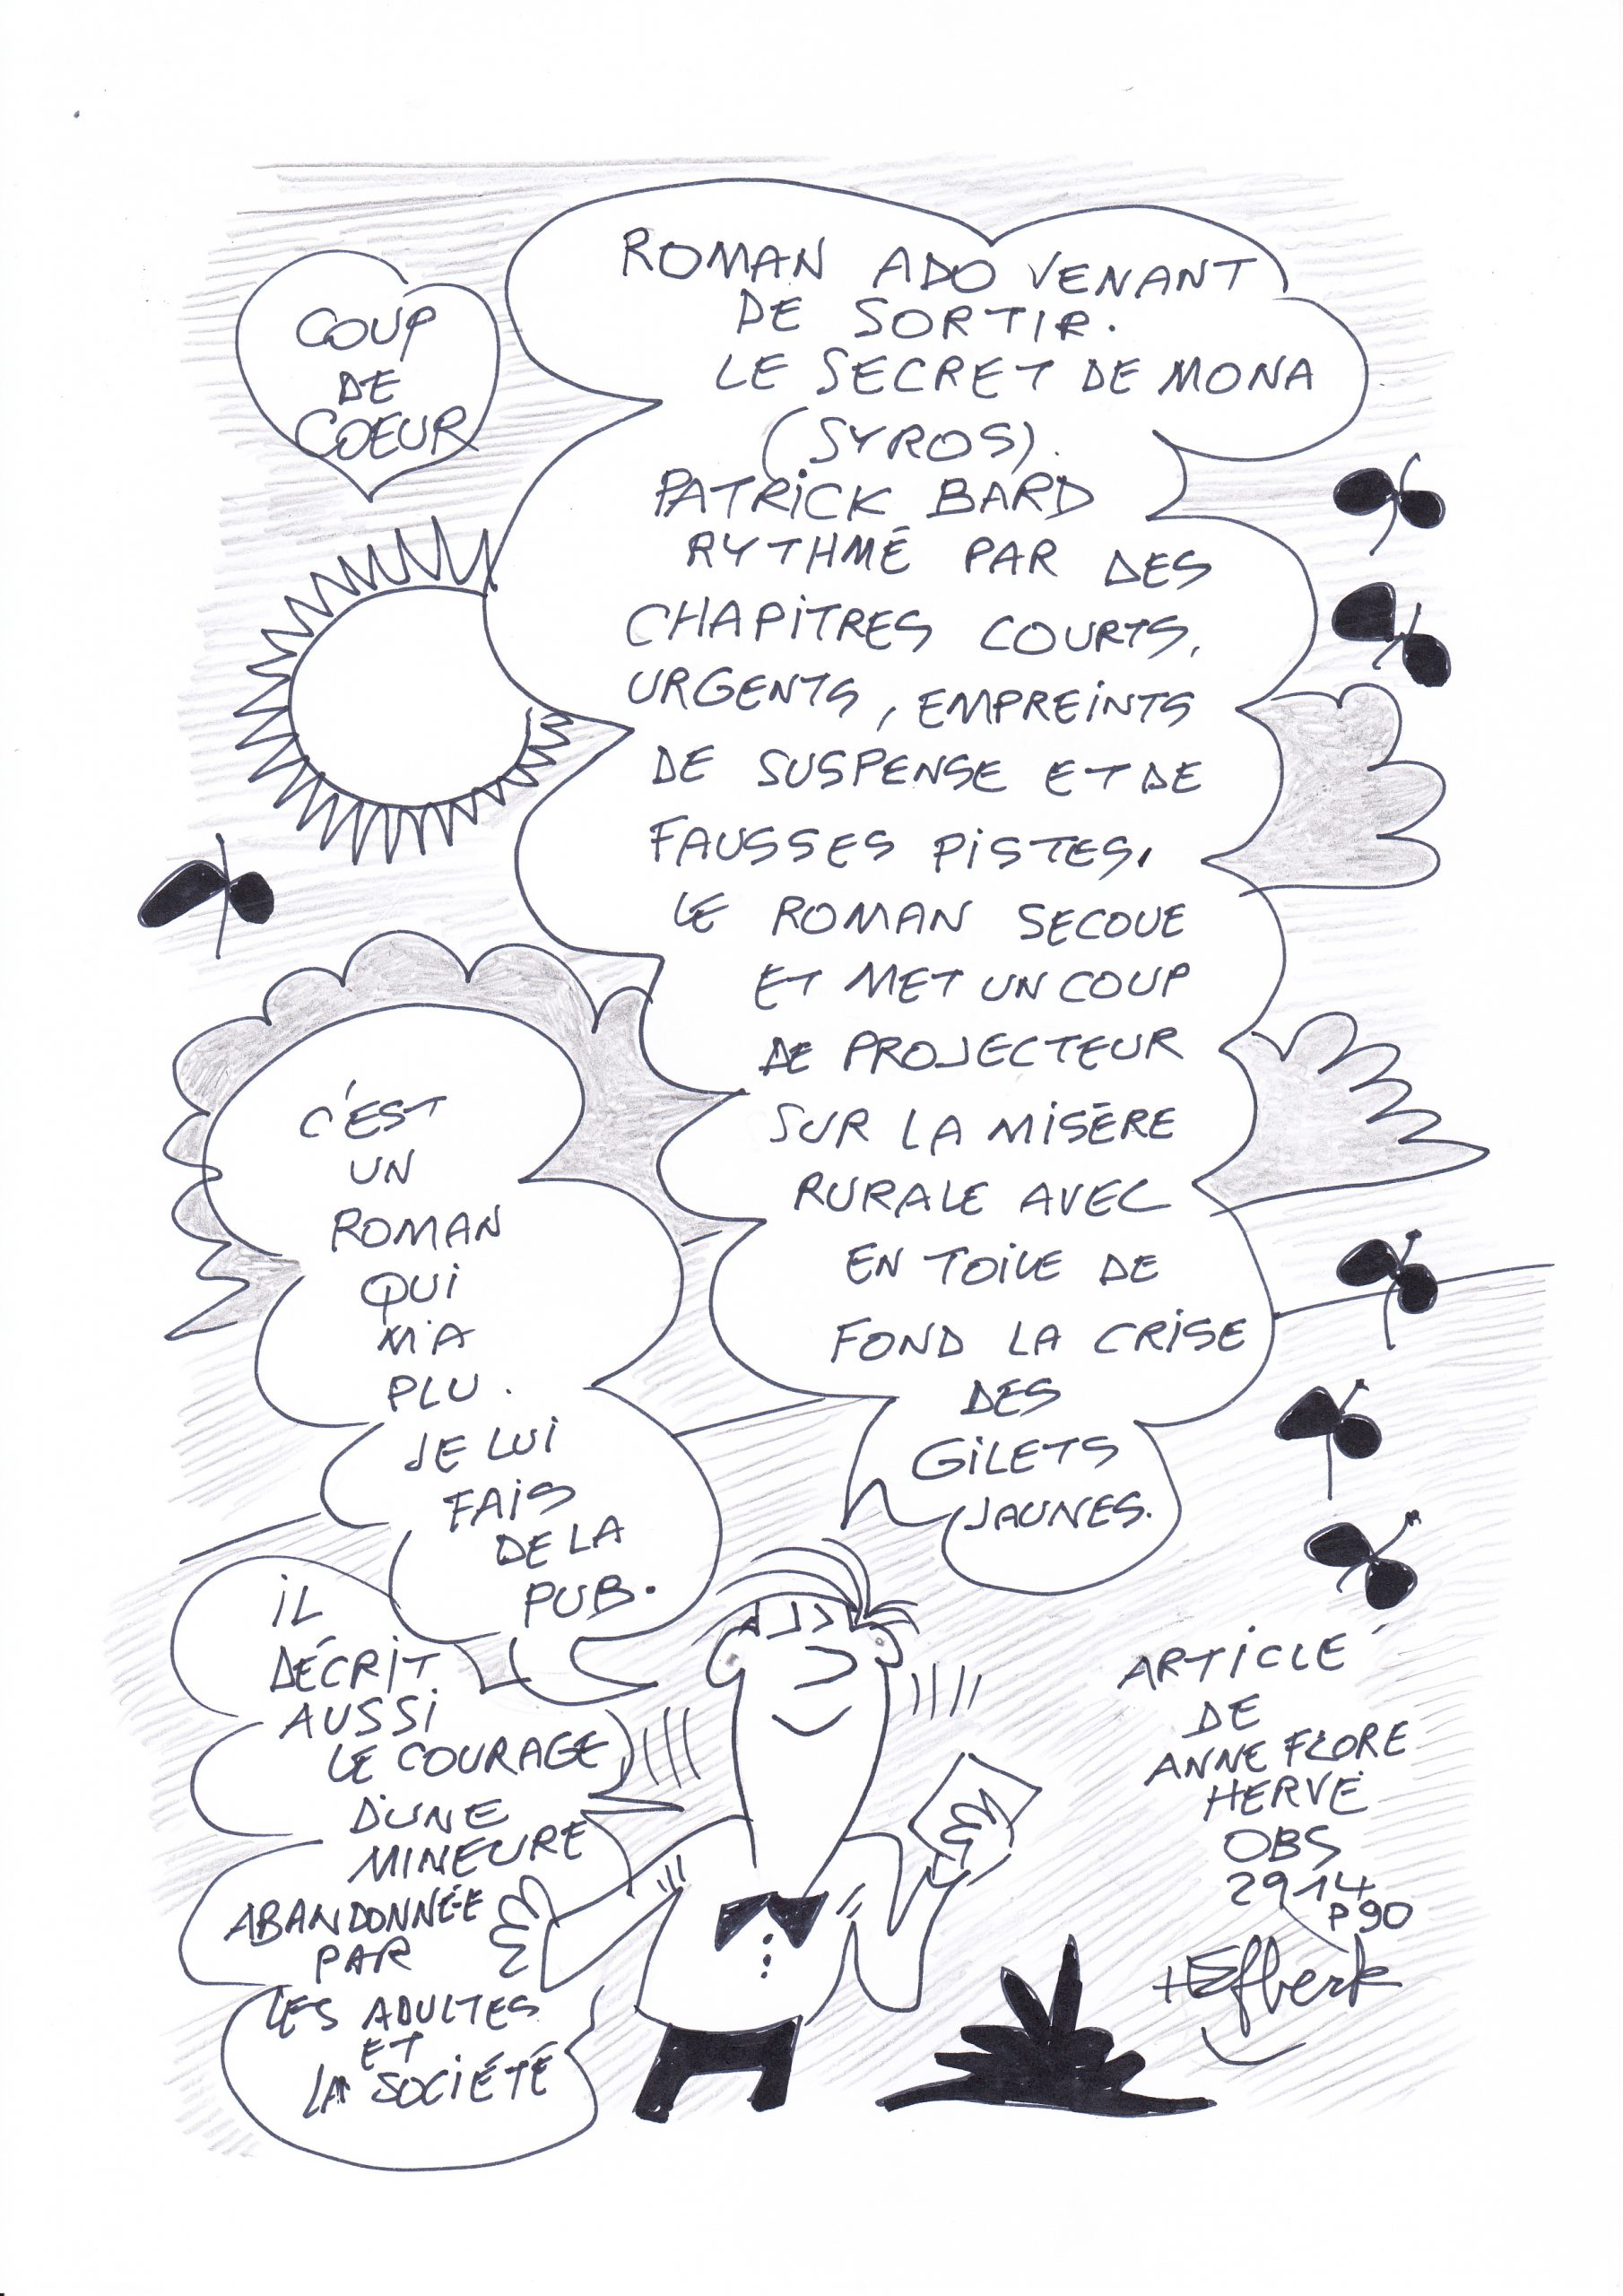 COUP
DE
COEUR
ROMAN ADO VENANT
DE SORTIR.
LE SECRET DE MONA
(SYROS).
PATRICK BARD
RYTHMÉ PAR DES
CHAPITRES COURTS,
URGENTS, EMPREINTS
DE SUSPENSE ET DE
FAUSSES PISTES,
LE ROMAN SECOUE
ET MET UN COUP
DE PROJECTEUR
SUR LA MISÈRE
RURALE AVEC
EN TOILE DE
FOND LA CRISE
DES
GILETS
JAUNES.
C'EST
UN
ROMAN
QUI
M'A
PLU.
JE LUI
FAIS
DE LA
PUB.
IL
DÉCRIT
AUSSI
LE COURAGE
D'UNE
MINEURE
ABANDONNÉE
PAR
LES ADULTES
ET
LA SOCIÉTÉ
ARTICLE
DE
ANNE FLORE
HERVÉ
OBS
2914
P90